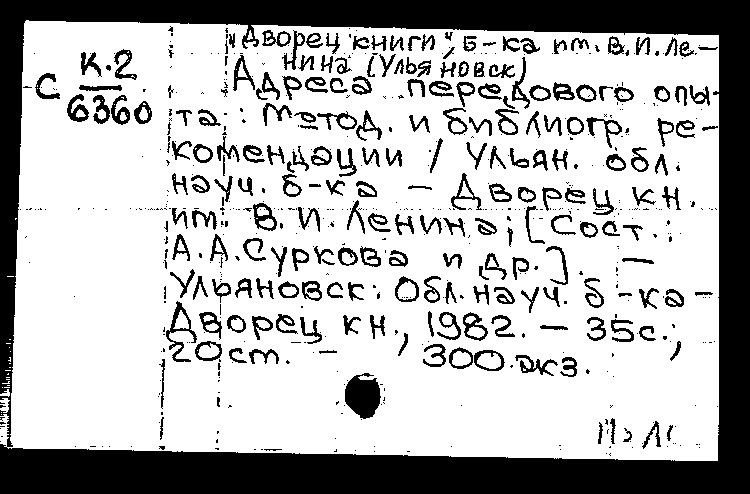 "Дворец книги", б-ка им. В.И. Ле-
нина (Ульяновск)
С К.2
6360
Адреса передового опы-
та : Метод. и библиогр. ре-
комендации / Ульян. обл.
науч. б-ка - Дворец кн.
им. В.И. Ленина; [Сост.:
А.А. Суркова и др.]. —
Ульяновск: Обл. науч. б-ка -
Дворец кн., 1982. — 35с.;
20 см. — , 300 экз.